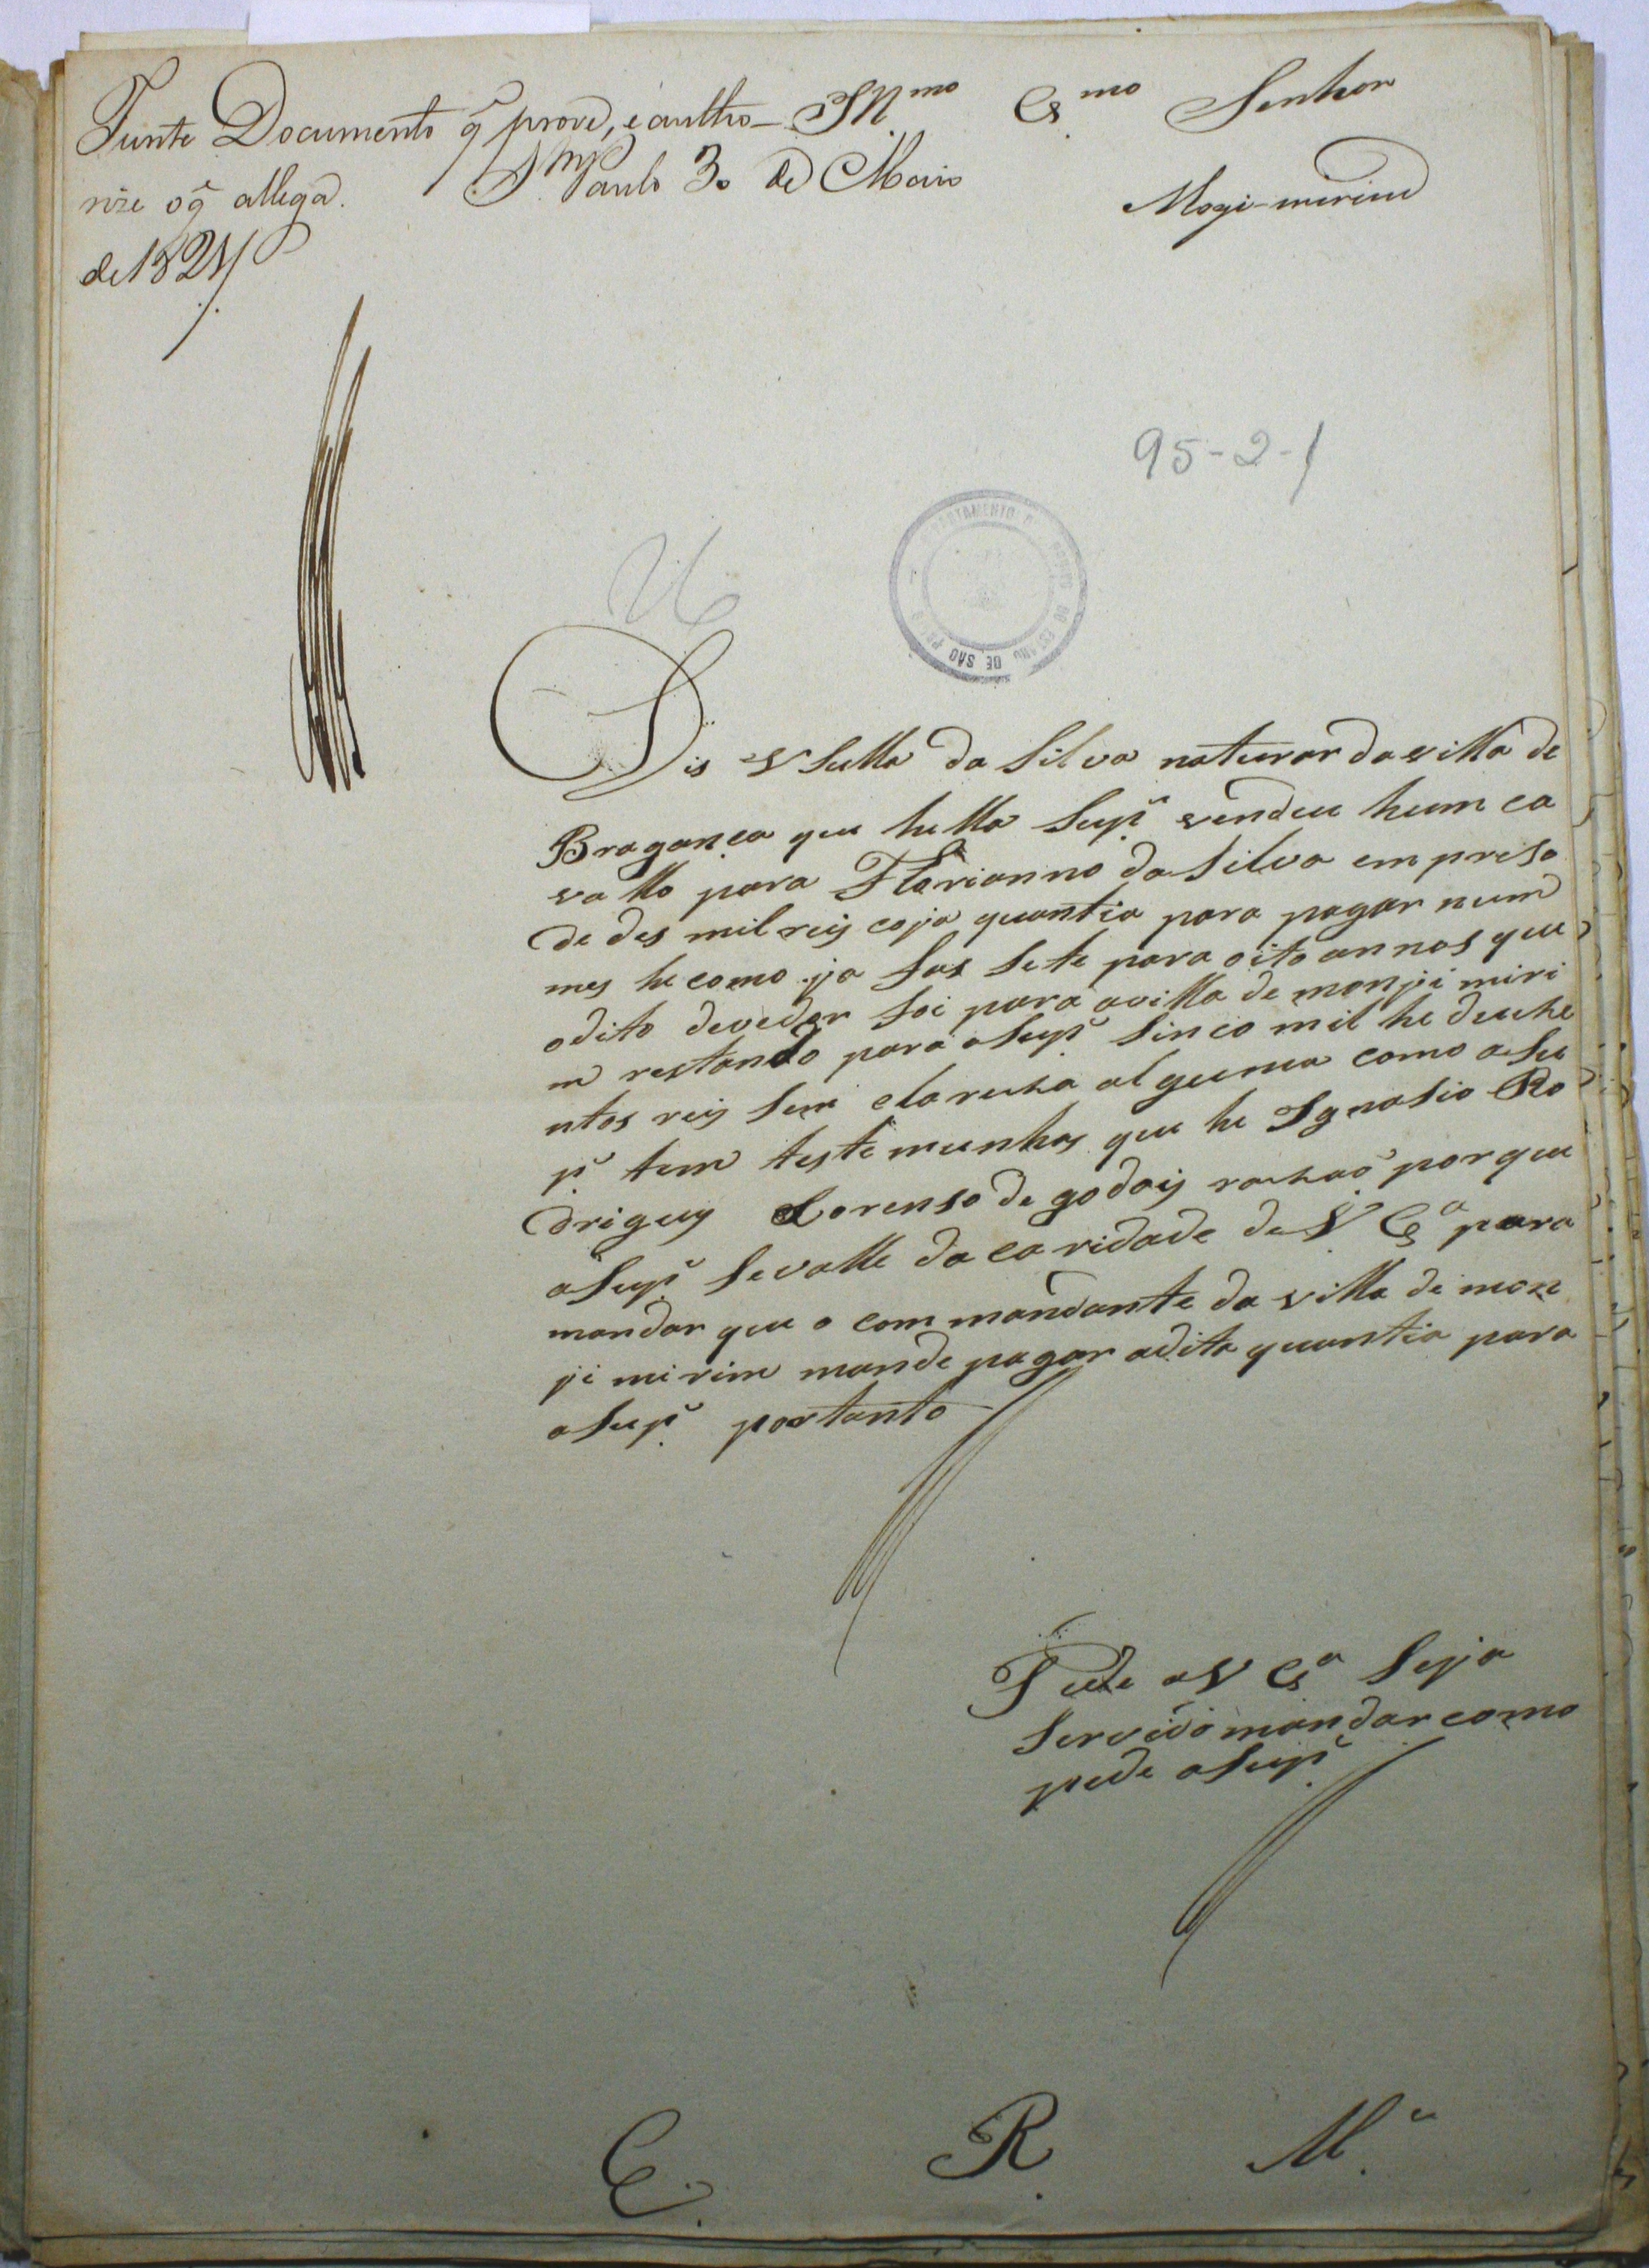 Junte Documento q̃ prove, e autho-
rize o q̃ allega. S. Paulo 30 de Maio
de 1821
Illmo Exmo Senhor
Mogi-mirim
95-2-1
DE SAO
Dis Vsulla da Silva naturar da villa de
Bragança que hella Supe vendeu hum ca
vallo para Florianno da Silva em preso
de des mil reis coja quantia para pagar num
mes he como ja fas sete para oito annos que
o dito devedor foi para a villa de monji miri
m restando para a Supe sinco mil he duzhe
ntos reis sem clareza alguma como a Su
pe tem testemunhas que he Ignasio Ro
drigues Lorenso de godois razaõ porque
a Supe se valle da caridade de V Exa para
mandar que o commandante da villa de mon
ji mirim mande pagar a dita quantia para
a Supe portanto
Pede a V Exa Seja
Servido mandar como
pede a Supe
E. R. Me